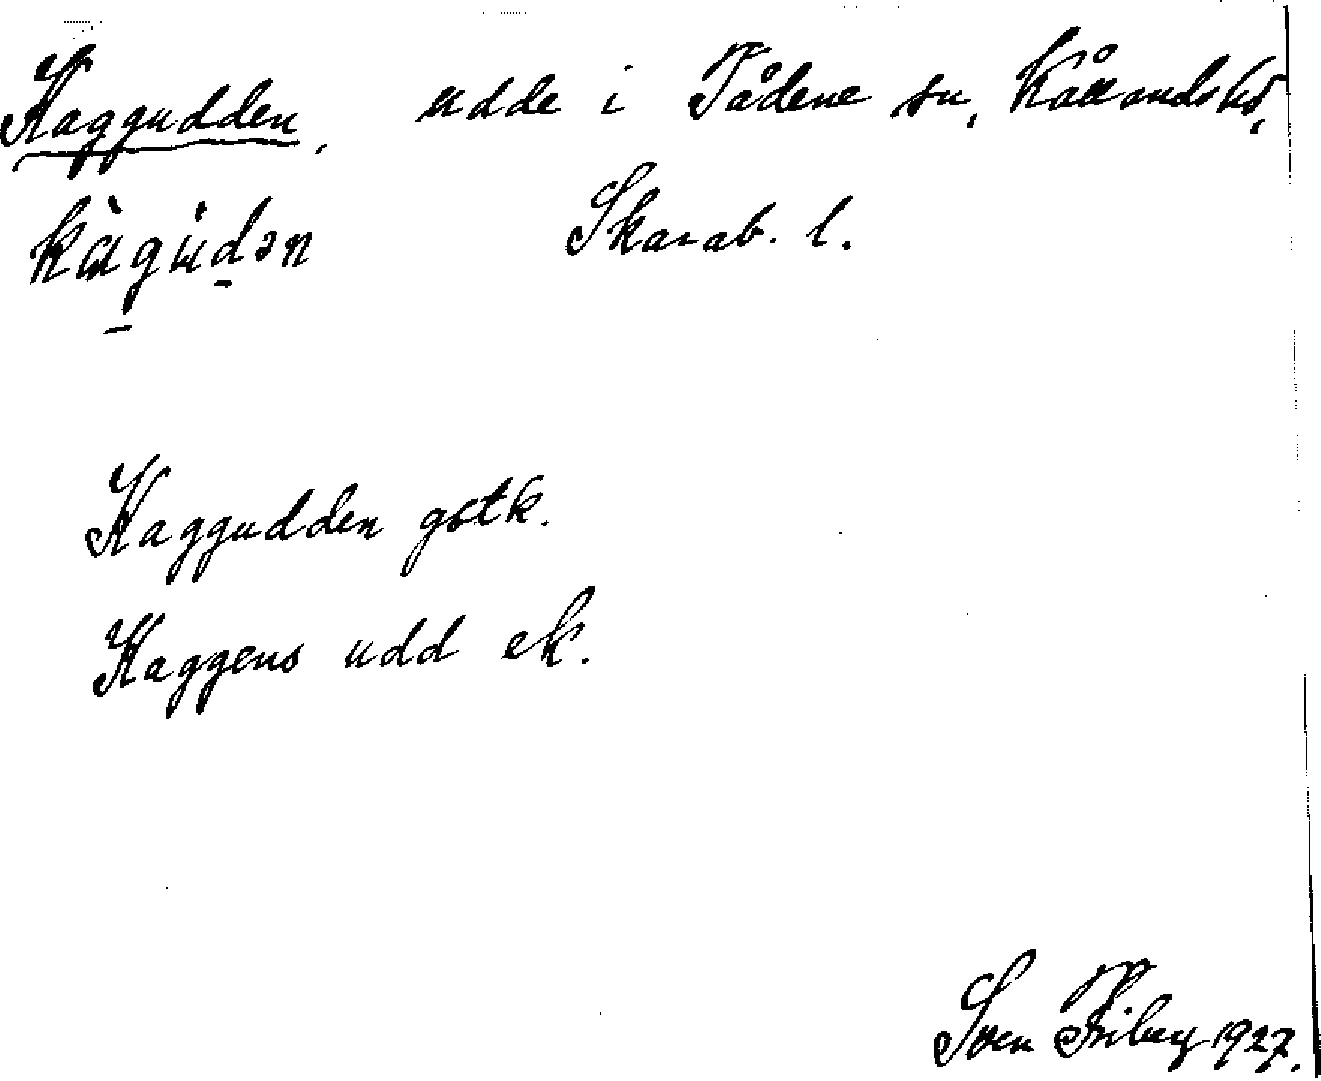 Kaggudden, udde i Tådene sn, Kållands hd,
Skarab. l.
Kaggudden gstk.
Kaggens udd ek.
Sven Friberg 1927.